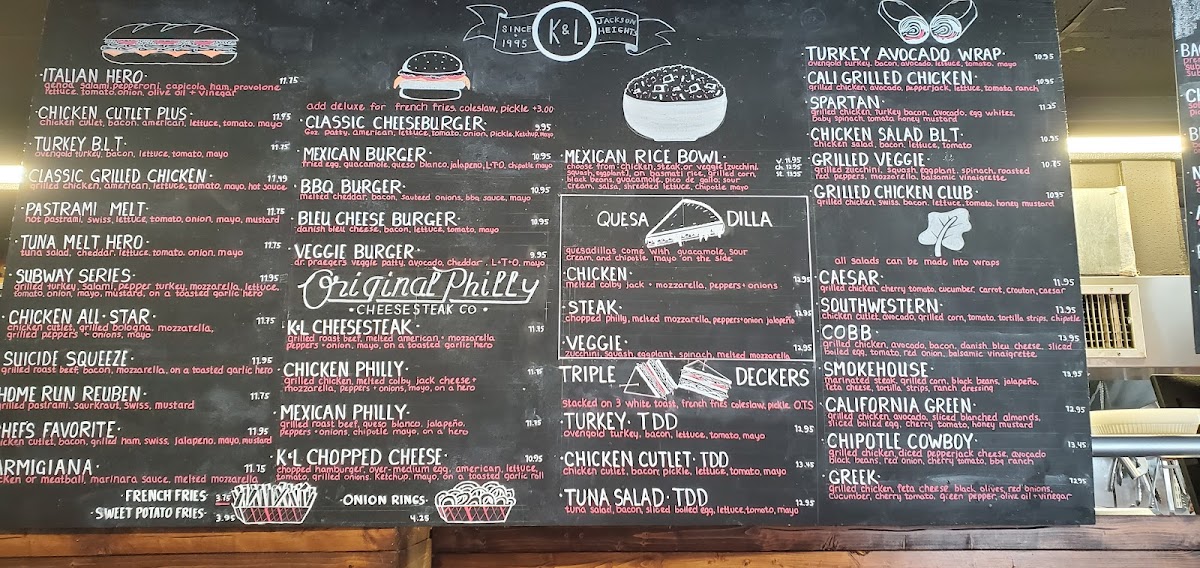 SINCE 1995
K&L
JACKSON HEIGHTS
·ITALIAN HERO· 11.75
genoa salami, pepperoni, capicola, ham, provolone
lettuce, tomato, onion, olive oil + vinegar
·CHICKEN CUTLET PLUS· 11.95
chicken cutlet, bacon, american, lettuce, tomato, mayo
TURKEY B.L.T·
ovengold turkey, bacon, lettuce, tomato, mayo
·CLASSIC GRILLED CHICKEN·
grilled chicken, american, lettuce, tomato, mayo, hot sauce
·PASTRAMI MELT· 11.75
hot pastrami, swiss, lettuce, tomato, onion, mayo, mustard
·TUNA MELT HERO· 11.75
tuna salad, cheddar, lettuce, tomato, onion, mayo
·SUBWAY SERIES· 11.95
grilled turkey, salami, pepper turkey, mozzarella, lettuce,
tomato, onion, mayo, mustard, on a toasted garlic hero
·CHICKEN ALL·STAR· 11.75
chicken cutlet, grilled bologna, mozzarella,
grilled peppers + onions, mayo
SUICIDE SQUEEZE· 11.95
grilled roast beef, bacon, mozzarella, on a toasted garlic hero
HOME RUN REUBEN· 11.75
grilled pastrami, saurkraut, swiss, mustard
CHEFS FAVORITE· 11.95
chicken cutlet, bacon, grilled ham, swiss, jalapeno, mayo, mustard
PARMIGIANA· 11.75
chicken or meatball, marinara sauce, melted mozzarella
·FRENCH FRIES· 3.75
·SWEET POTATO FRIES· 3.95
add deluxe for french fries, coleslaw, pickle +3.00
·CLASSIC CHEESEBURGER· 9.95
6oz. patty, american, lettuce, tomato, onion, pickle, ketchup, mayo
·MEXICAN BURGER· 10.95
fried egg, guacamole, queso blanco, jalapeno, L·T·O, chipotle mayo
·BBQ BURGER· 10.95
melted cheddar, bacon, sauteed onions, bbq sauce, mayo
·BLEU CHEESE BURGER· 10.95
danish bleu cheese, bacon, lettuce, tomato, mayo
·VEGGIE BURGER·
dr. praegers veggie patty, avocado, cheddar, L·T·O, mayo
Original Philly
·CHEESESTEAK CO·
·K·L CHEESESTEAK·
grilled roast beef, melted american + mozzarella
peppers + onion, mayo, on a toasted garlic hero
·CHICKEN PHILLY·
grilled chicken, melted colby jack cheese +
mozzarella, peppers + onions, mayo, on a hero
·MEXICAN PHILLY·
grilled roast beef, queso blanco, jalapeno,
peppers + onions, chipotle mayo, on a hero
·K·L CHOPPED CHEESE· 10.95
chopped hamburger, over-medium egg, american, lettuce,
tomato, grilled onions, ketchup, mayo, on a toasted garlic roll
·ONION RINGS· 4.25
·MEXICAN RICE BOWL· V. 11.95 CH. 12.95 ST. 13.95
choose from: chicken, steak, or veggie (zucchini,
squash, eggplant), on basmati rice, grilled corn,
black beans, guacamole, pico de gallo, sour
cream, salsa, shredded lettuce, chipotle mayo
QUESADILLA
quesadillas come with guacamole, sour
cream, and chipotle mayo on the side
·CHICKEN· 12.95
melted colby jack + mozzarella, peppers + onions
·STEAK·
chopped philly, melted mozzarella, peppers + onion jalapeño
·VEGGIE· 12.95
zucchini, squash, eggplant, spinach, melted mozzarella
TRIPLE DECKERS
stacked on 3 white toast, french fries, coleslaw, pickle O.T.S
·TURKEY· TDD 12.95
ovengold turkey, bacon, lettuce, tomato, mayo
·CHICKEN CUTLET· TDD 13.45
chicken cutlet, bacon, pickle, lettuce, tomato, mayo
·TUNA SALAD· TDD 12.95
tuna salad, bacon, sliced boiled egg, lettuce, tomato, mayo
TURKEY AVOCADO WRAP· 10.95
ovengold turkey, bacon, avocado, lettuce, tomato, mayo
CALI GRILLED CHICKEN· 10.95
grilled chicken, avocado, pepperjack, lettuce, tomato, ranch
·SPARTAN· 11.25
grilled chicken, turkey bacon, avocado, egg whites,
baby spinach, tomato, honey mustard
·CHICKEN SALAD B.L.T·
chicken salad, bacon, lettuce, tomato
·GRILLED VEGGIE· 10.75
grilled zucchini, squash, eggplant, spinach, roasted
red peppers, mozzarella, balsamic vinaigrette
GRILLED CHICKEN CLUB· 10.95
grilled chicken, swiss, bacon, lettuce, tomato, honey mustard
all salads can be made into wraps
·CAESAR· 11.95
grilled chicken, cherry tomato, cucumber, carrot, crouton, caesar
·SOUTHWESTERN·
chicken cutlet, avocado, grilled corn, tomato, tortilla strips, chipotle
·COBB·
grilled chicken, avocado, bacon, danish bleu cheese, sliced
boiled egg, tomato, red onion, balsamic vinaigrette
·SMOKEHOUSE·
marinated steak, grilled corn, black beans, jalapeño,
feta cheese, tortilla strips, ranch dressing
·CALIFORNIA GREEN· 12.95
grilled chicken, avocado, sliced blanched almonds,
sliced boiled egg, cherry tomato, honey mustard
·CHIPOTLE COWBOY· 13.45
grilled chicken, diced pepperjack cheese, avocado
black beans, red onion, cherry tomato, bbq ranch
·GREEK· 12.95
grilled chicken, feta cheese, black olives, red onions,
cucumber, cherry tomato, green pepper, olive oil + vinegar